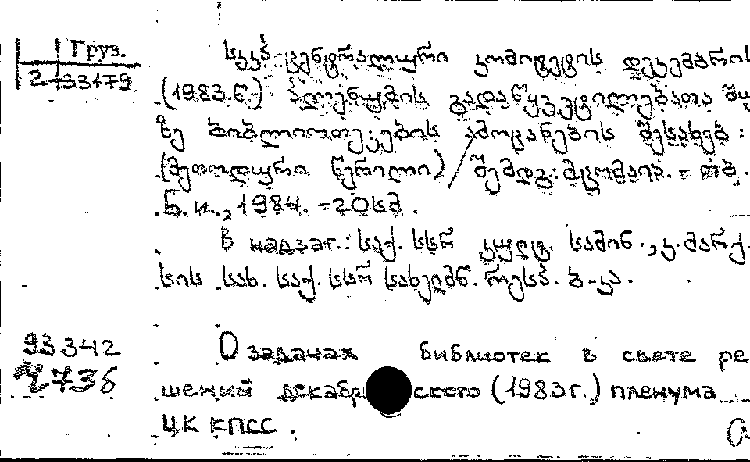 Груз.
2-93479
სკკპ ცენტრალური კომიტეტის დეკემბრის
(1983.წ.) პლენუმის გადაწყვეტილებათა შუ
ზე ბიბლიოთეკების ამოცანების შესახებ:
(მეთოდური წერილი) შემდგ: მ. = თბ.
Б. и., 1984. =20სმ.
В надзаг.: საქ. სსრ კულტ. სამინ., კ. მარქ
სის სახ. საქ. სსრ სახელმწ. რესპ. ბ-კა.
93342
О задачах библиотек в свете ре
2736
шений декабрьского (1983г.) пленума
ЦК КПСС.